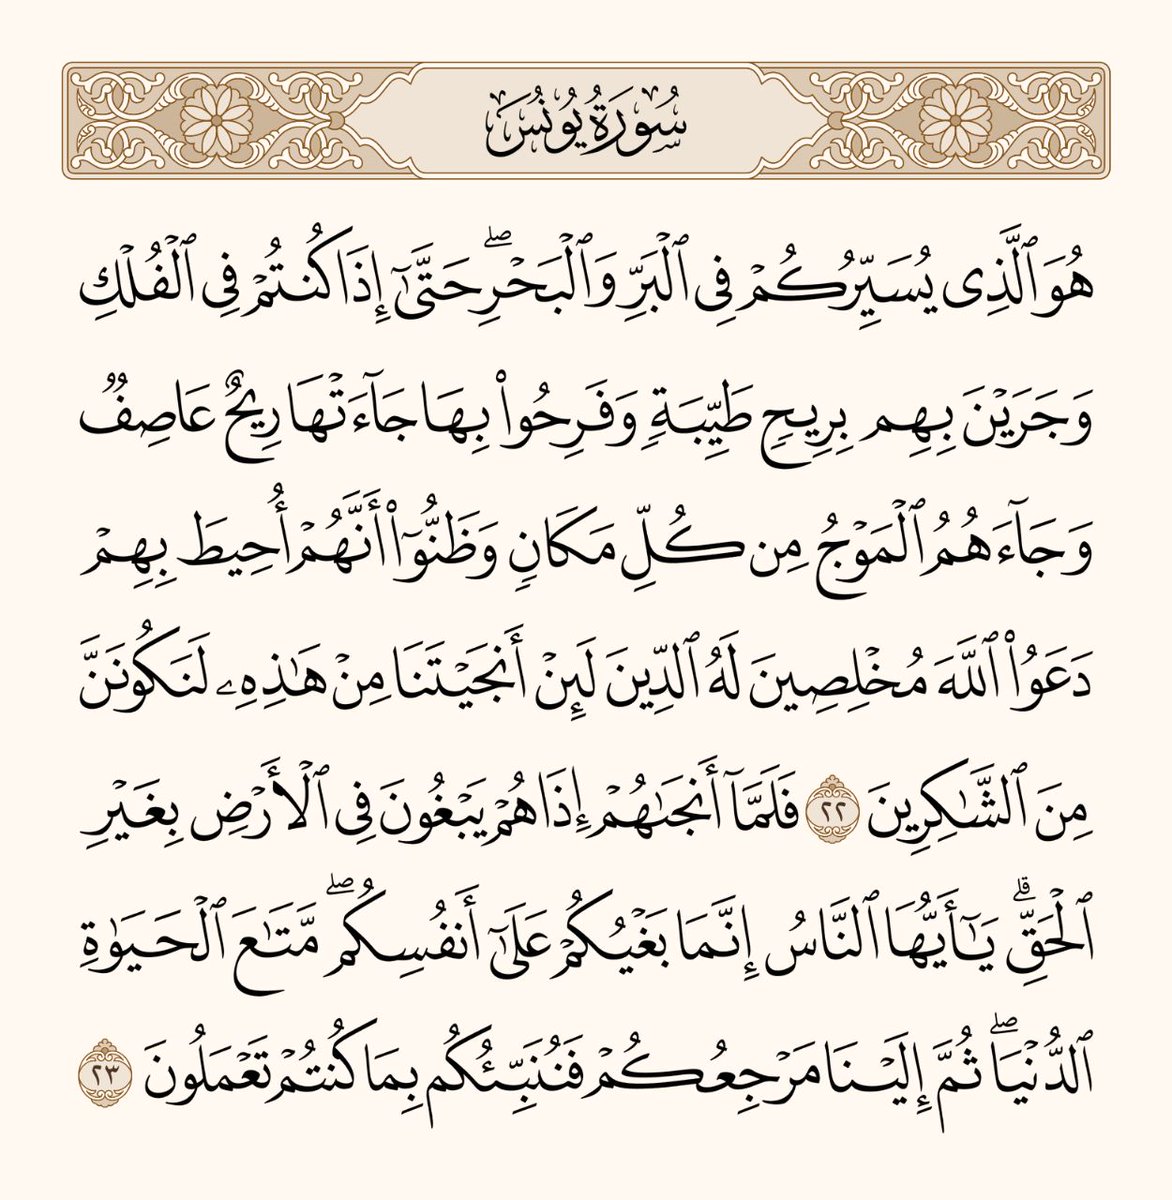 سُورَةُ يُونُسَ
هُوَ ٱلَّذِى يُسَيِّرُكُمْ فِى ٱلْبَرِّ وَٱلْبَحْرِ ۖ حَتَّىٰٓ إِذَا كُنتُمْ فِى ٱلْفُلْكِ
وَجَرَيْنَ بِهِم بِرِيحٍ طَيِّبَةٍ وَفَرِحُوا۟ بِهَا جَآءَتْهَا رِيحٌ عَاصِفٌ
وَجَآءَهُمُ ٱلْمَوْجُ مِن كُلِّ مَكَانٍ وَظَنُّوٓا۟ أَنَّهُمْ أُحِيطَ بِهِمْ
دَعَوُا۟ ٱللَّهَ مُخْلِصِينَ لَهُ ٱلدِّينَ لَئِنْ أَنجَيْتَنَا مِنْ هَـٰذِهِۦ لَنَكُونَنَّ
مِنَ ٱلشَّـٰكِرِينَ ٢٢ فَلَمَّآ أَنجَىٰهُمْ إِذَا هُمْ يَبْغُونَ فِى ٱلْأَرْضِ بِغَيْرِ
ٱلْحَقِّ ۗ يَـٰٓأَيُّهَا ٱلنَّاسُ إِنَّمَا بَغْيُكُمْ عَلَىٰٓ أَنفُسِكُم ۖ مَّتَـٰعَ ٱلْحَيَوٰةِ
ٱلدُّنْيَا ۖ ثُمَّ إِلَيْنَا مَرْجِعُكُمْ فَنُنَبِّئُكُم بِمَا كُنتُمْ تَعْمَلُونَ ٢٣